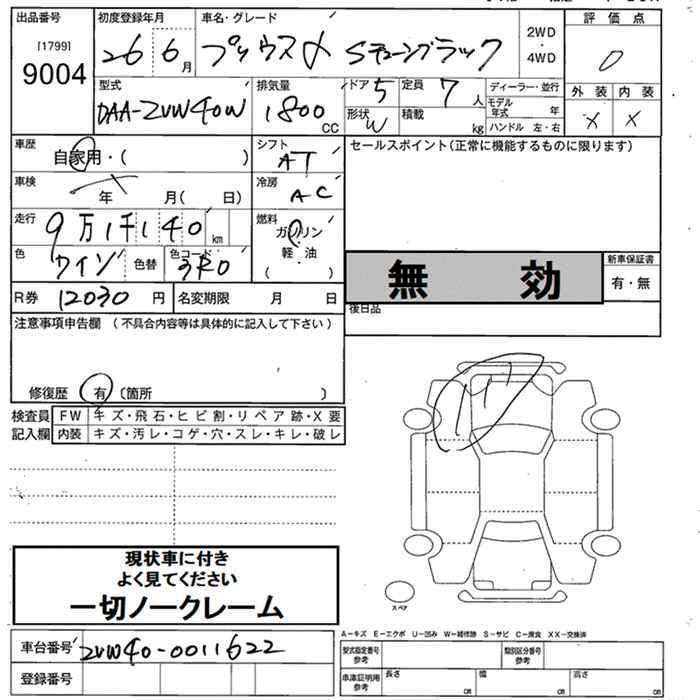 出品番号 初度登録年月 車名・グレード 2WD・4WD 評価点
[1799]
9004 26 6月 プリウスα Sチューンブラック 0
型式 排気量 ドア 5 定員 7人 ディーラー・並行 外装 内装
DAA-ZVW40W 1800CC 形状 W 積載 kg モデル年式 年 × ×
ハンドル 左・右
車歴 自家用・( ) シフト AT セールスポイント(正常に機能するものに限ります)
車検 年 月( 日) 冷房 AC
走行 9万1千140km 燃料 ガソリン
軽・油
( )
色 ワイン 色替 色コード 3R0
無効 新車保証書
有・無
R券 12030円 名変期限 月 日 後日品
注意事項申告欄 (不具合内容等は具体的に記入して下さい)
修復歴 有 〔箇所 〕
検査員記入欄 FW キズ・飛石・ヒビ割・リペア跡・X要
内装 キズ・汚レ・コゲ・穴・スレ・キレ・破レ
現状車に付き
よく見てください
一切ノークレーム
スペア
A-キズ E-エクボ U-凹み W-補修跡 S-サビ C-腐食 XX-交換済
車台番号 ZVW40-0011622 型式指定番号参考 類別区分番号参考
登録番号 車庫証明用参考 長さ cm 幅 cm 高さ cm